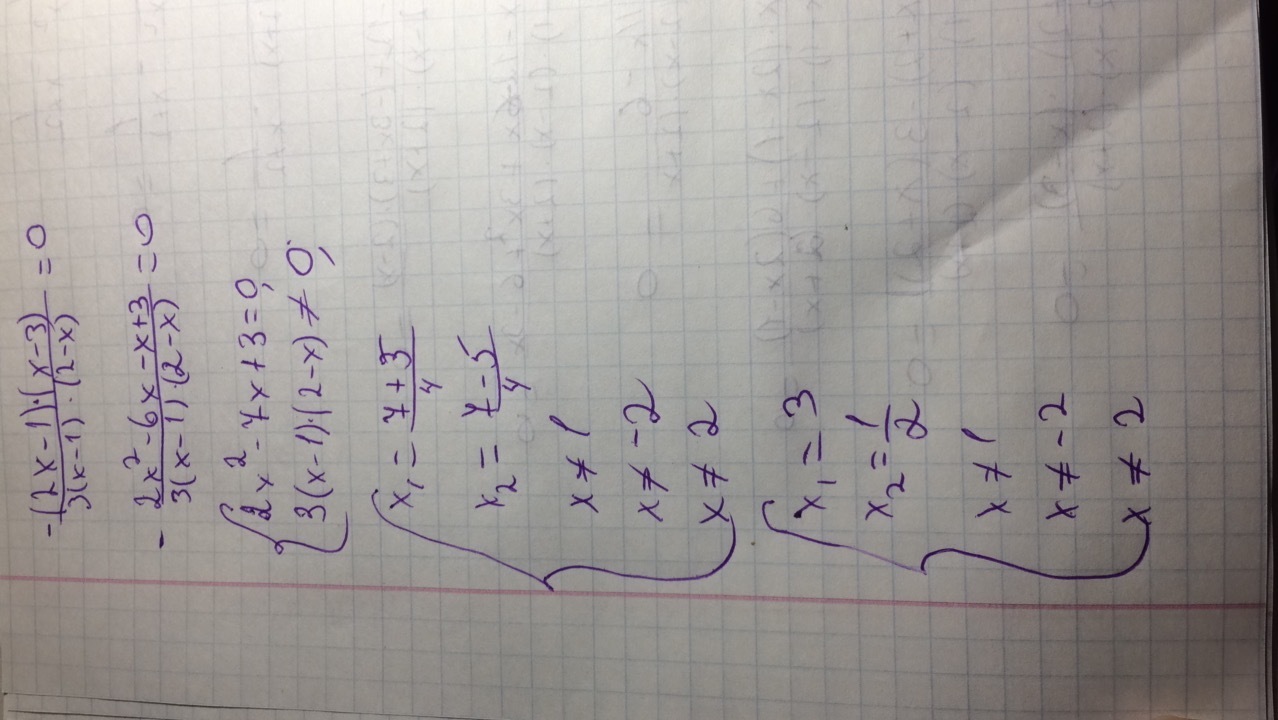 -(2x-1)·(x-3)/3(x-1)·(2-x) = 0
- 2x²-6x-x+3/3(x-1)·(2-x) = 0
{2x²-7x+3=0,
3(x-1)·(2-x)≠0,
{x₁ = 7+5/4
x₂ = 7-5/4
x ≠ 1
x ≠ -2
x ≠ 2
{x₁ = 3
x₂ = 1/2
x ≠ 1
x ≠ -2
x ≠ 2